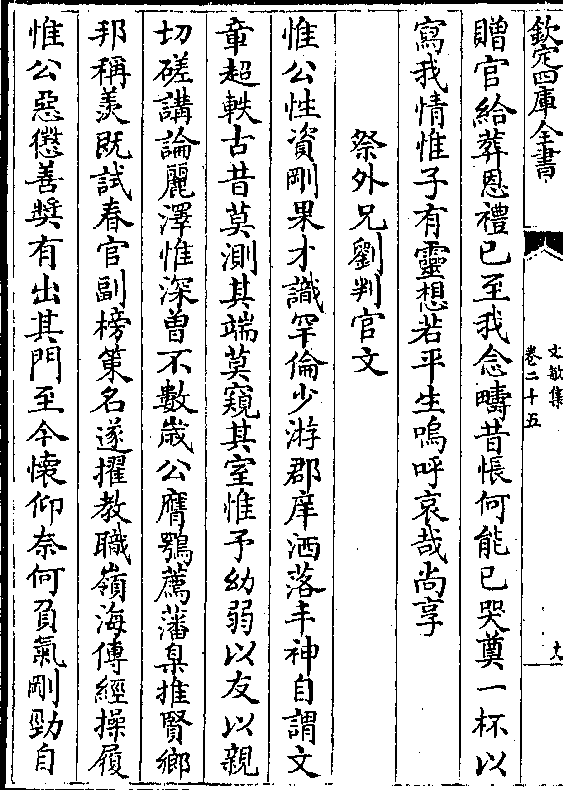 欽定四庫全書
文敏集
卷二十五
贈官給葬恩禮已至我念疇昔悵何能已哭奠一杯以
寫我情惟子有靈想若平生嗚呼哀哉尚享
祭外兄劉判官文
惟公性資剛果才識罕倫少游郡庠洒落丰神自謂文
章超軼古昔莫測其端莫窺其室惟予幼弱以友以親
切磋講論麗澤惟深曽不數歳公膺鶚薦藩臬推賢鄉
邦稱羨既試春官副榜策名遂擢教職嶺海傳經操履
惟公惡懲善奬有出其門至今懷仰奈何負氣剛勁自